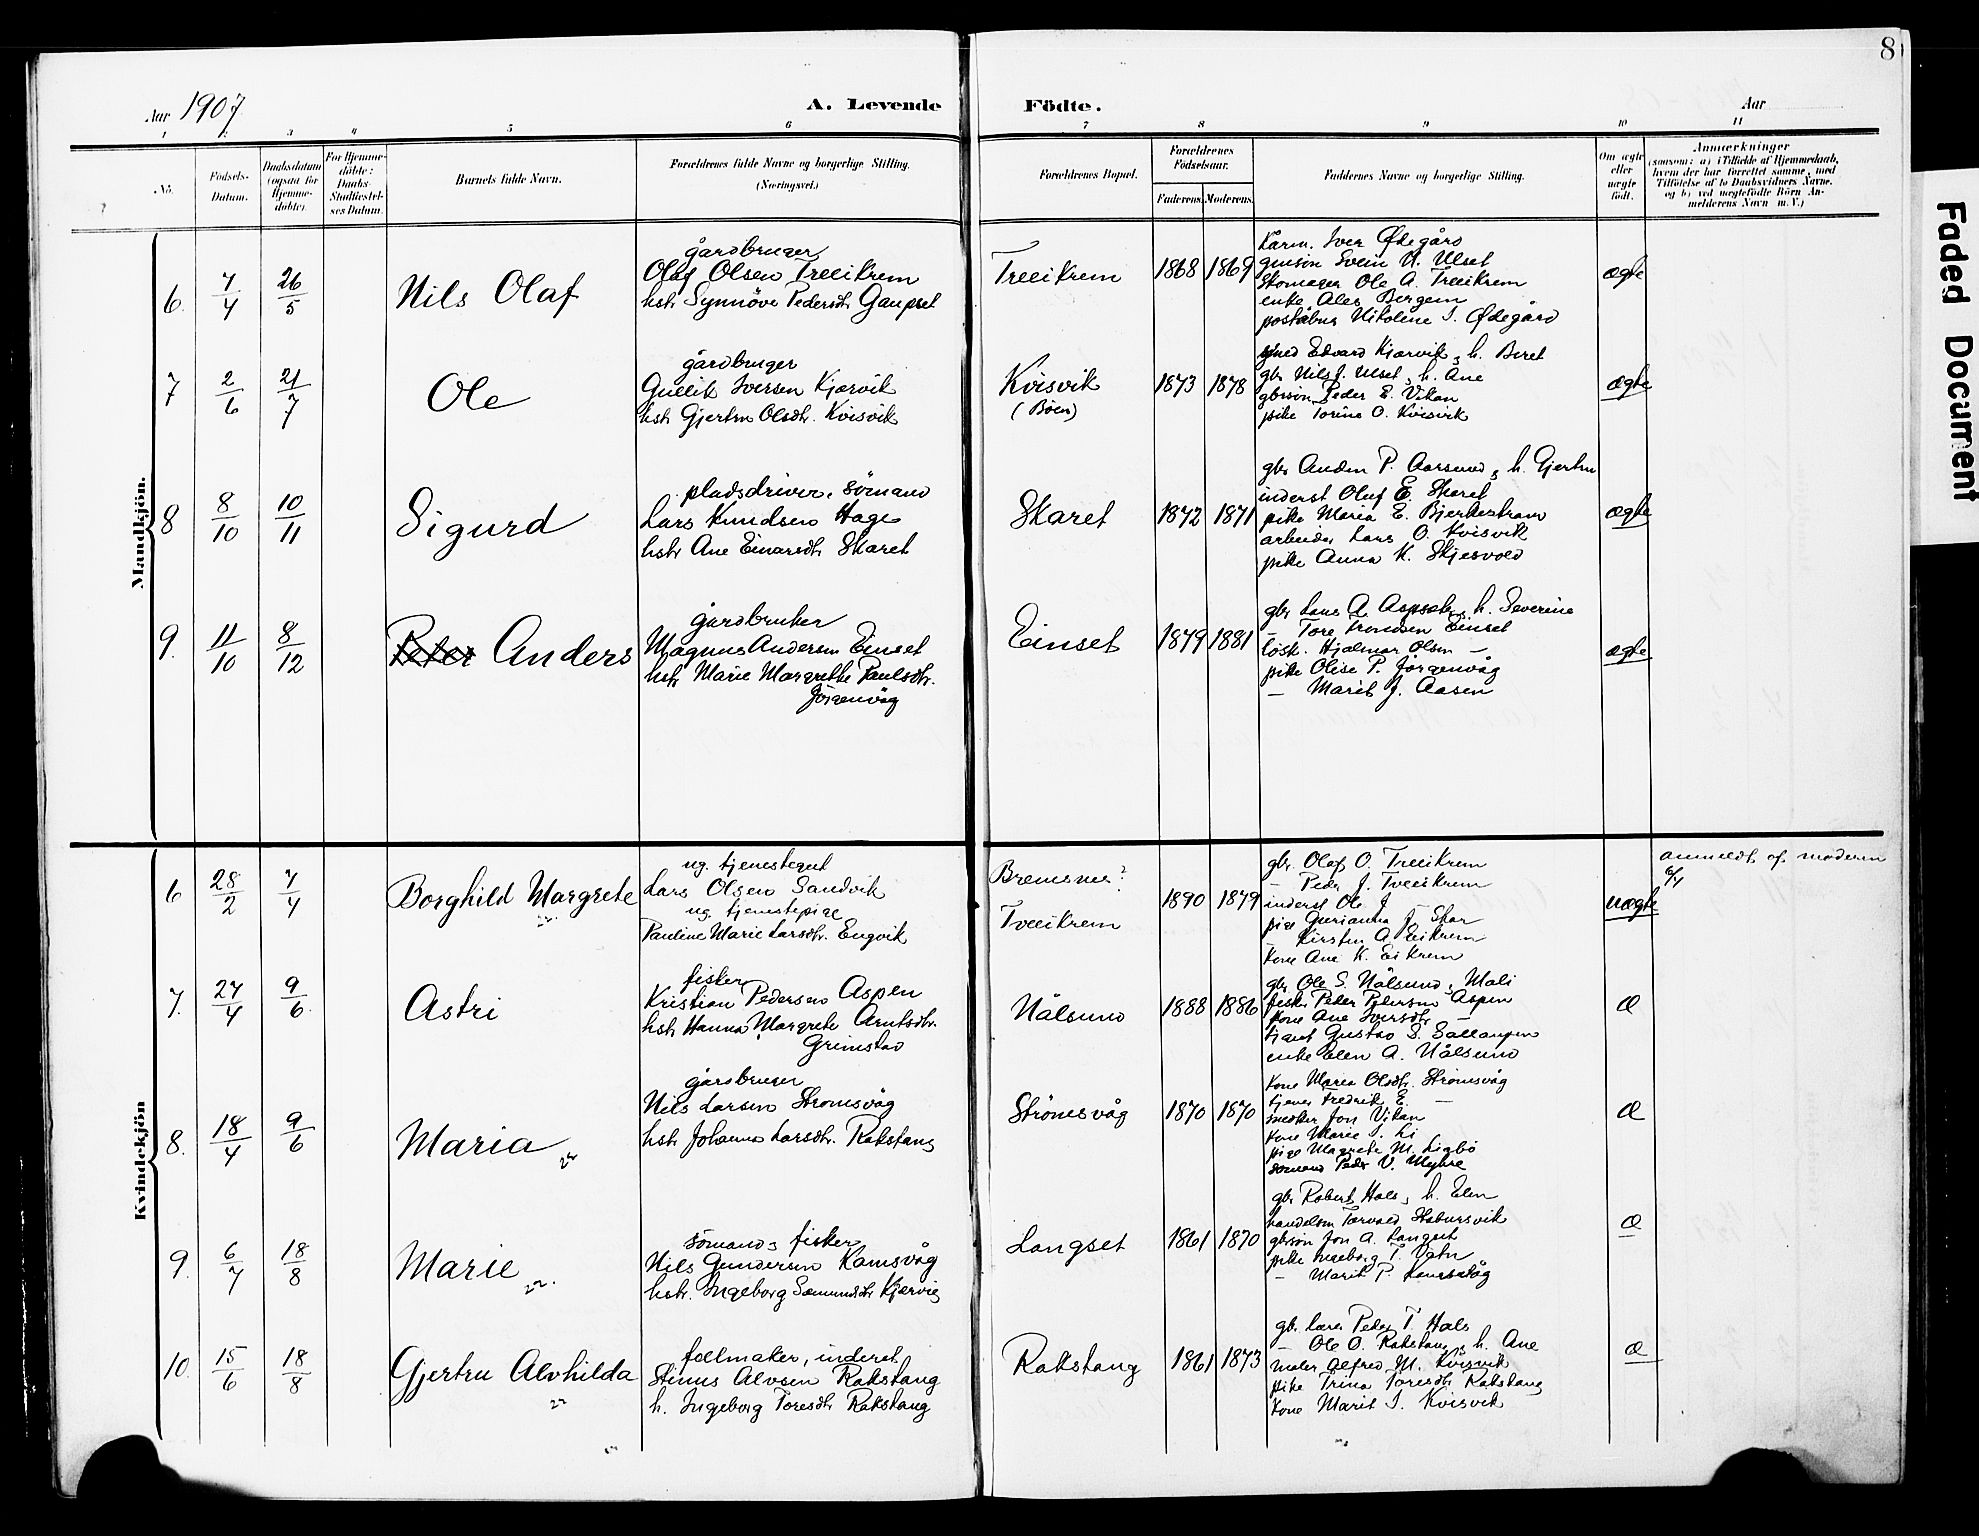 8
Aar 1907
A. Levende
Födte.
Aar
1 2 3 4 5 6 7 8 9 10 11
No.
Födsels-
Datum.
Daabsdatum
(ogsaa for
Hjemme-
döbte).
For Hjemme-
döbte:
Daabs-
Stadfæstel-
ses Datum.
Barnets fulde Navn.
Forældrenes fulde Navne og borgerlige Stilling.
(Næringsvei.)
Forældrenes Bopæl.
Forældrenes
Födselsaar.
Faderens. Moderens.
Faddernes Navne og borgerlige Stilling.
Om ægte
eller
uægte
födt.
Anmærkninger
(saasom: a) i Tilfælde af Hjemmedaab,
hvem der har forrettet samme, med
Tilföielse af to Daabsvidners Navne.
og b) ved uægtefödte Börn An-
melderens Navn m. V.)
Faded Document
Mandkjön.
6. 7/4 26/5 Nils Olaf
gårdbruger
Olaf Olsen Treeikrem
hstr. Synnöve Pedersdtr. Gaupset
Treeikrem 1868 1869
Iver Ødegård
Svein Ulset
Skomager Ole A. Treeikrem
enke Ales Bergem
Nikoline I. Ødegård
ægte
7 2/6 21/7 Ole
gårdbruger
Gullik Iversen Kjørvik
hstr. Gjertru Olsdtr. Kvisvik
Kvisvik
(Böen)
1873 1878
Edvard Kjørvik, h. Beret
gbr. Nils J. Ulset, h. Ane
gbrsön Peder E. Vikan
pike Torine O. Kvisvik
ægte
8 8/10 10/11 Sigurd
pladsdriver, sömand
Lars Knudsen Hage
hstr. Ane Einarsdtr. Skaret
Skaret 1872 1871
gbr. Anders P. Aarsund, h. Gjertru
inderst Oluf E. Skaret
pike Maria E. Bjerkestrand
arbeider Lars O. Kvisvik
pike Anna K. Skjesvold
ægte
9. 11/10 8/12 Peter Anders
gårdbruker
Magnus Andersen Einset
hstr. Marie Margrethe Paulsdtr.
Jörgenvåg
Einset 1879 1881
gbr. Lars A. Aspset, h. Severine
— Tore Trondsen Einset
lösk. Hjalmar Olsen —
pike Olise P. Jörgenvåg
— Marit J. Aasen
ægte
Kvindekjön
6 28/2 7/4 Borghild Margrete
ug. tjenestegut
Lars Olsen Sandvik
ug. tjenestepige
Pauline Marie Larsdtr. Engvik
Bremsnes?
Tveeikrem
1890 1879
gbr. Olaf O. Treeikrem
— Peder J. Tveeikrem
inderst Ole J. —
pige Gurianna J. Skar
— Kirsten A. Eikrem
kone Ane K. Eikrem
uægte
anmeldt af moderen
7. 27/4 9/6. Astri
fisker
Kristian Pedersen Aspen
hstr. Hanna Margrete Arntsdtr.
Grimstad
Nålsund 1888 1886
gbr. Ole S. Nålsund, Mali
fisker Peder Pedersen Aspen
kone Ane Iversdtr. —
tjgut Gustav S.
enke Elen A. Nålsund
Æ
8. 18/4 9/6 Maria
gårdbruger
Nils Larsen Strömsvåg
hstr. Johanna Larsdtr. Rakstang
Strömsvåg 1870 1870
kone Maria Olsdtr. Strömsvåg
tjener Fredrik E. —
snedker Jon Vikan
kone Marie I. Li
pige Magrete M. Ligbö
sömand Peder V. Myhre
Æ
9. 6/7 18/8 Marie
sömand, fisker
Nils Gundersen Kamsvåg
hstr. Ingeborg Sæmundsdtr. Kjørvig
Langset 1861 1870
gbr. Robert Hals, h. Elen
handelsm Torvald Stabursvik
gbrsön Jon A. Langset
pike Ingeborg T. Vatn
— Marit P.
Æ
10. 15/6 18/8 Gjertru Alvhilda
follmaker, inderst
Stinus Alvsen Rakstang
h. Ingeborg Toresdtr. Rakstang
Rakstang 1861 1873
gbr. Peder T. Hals
— Ole O. Rakstang, h. Ane
maler Alfred M. Kvisvik
pike Trina Toresdtr. Rakstang
kone Marit I. Kvisvik
Æ